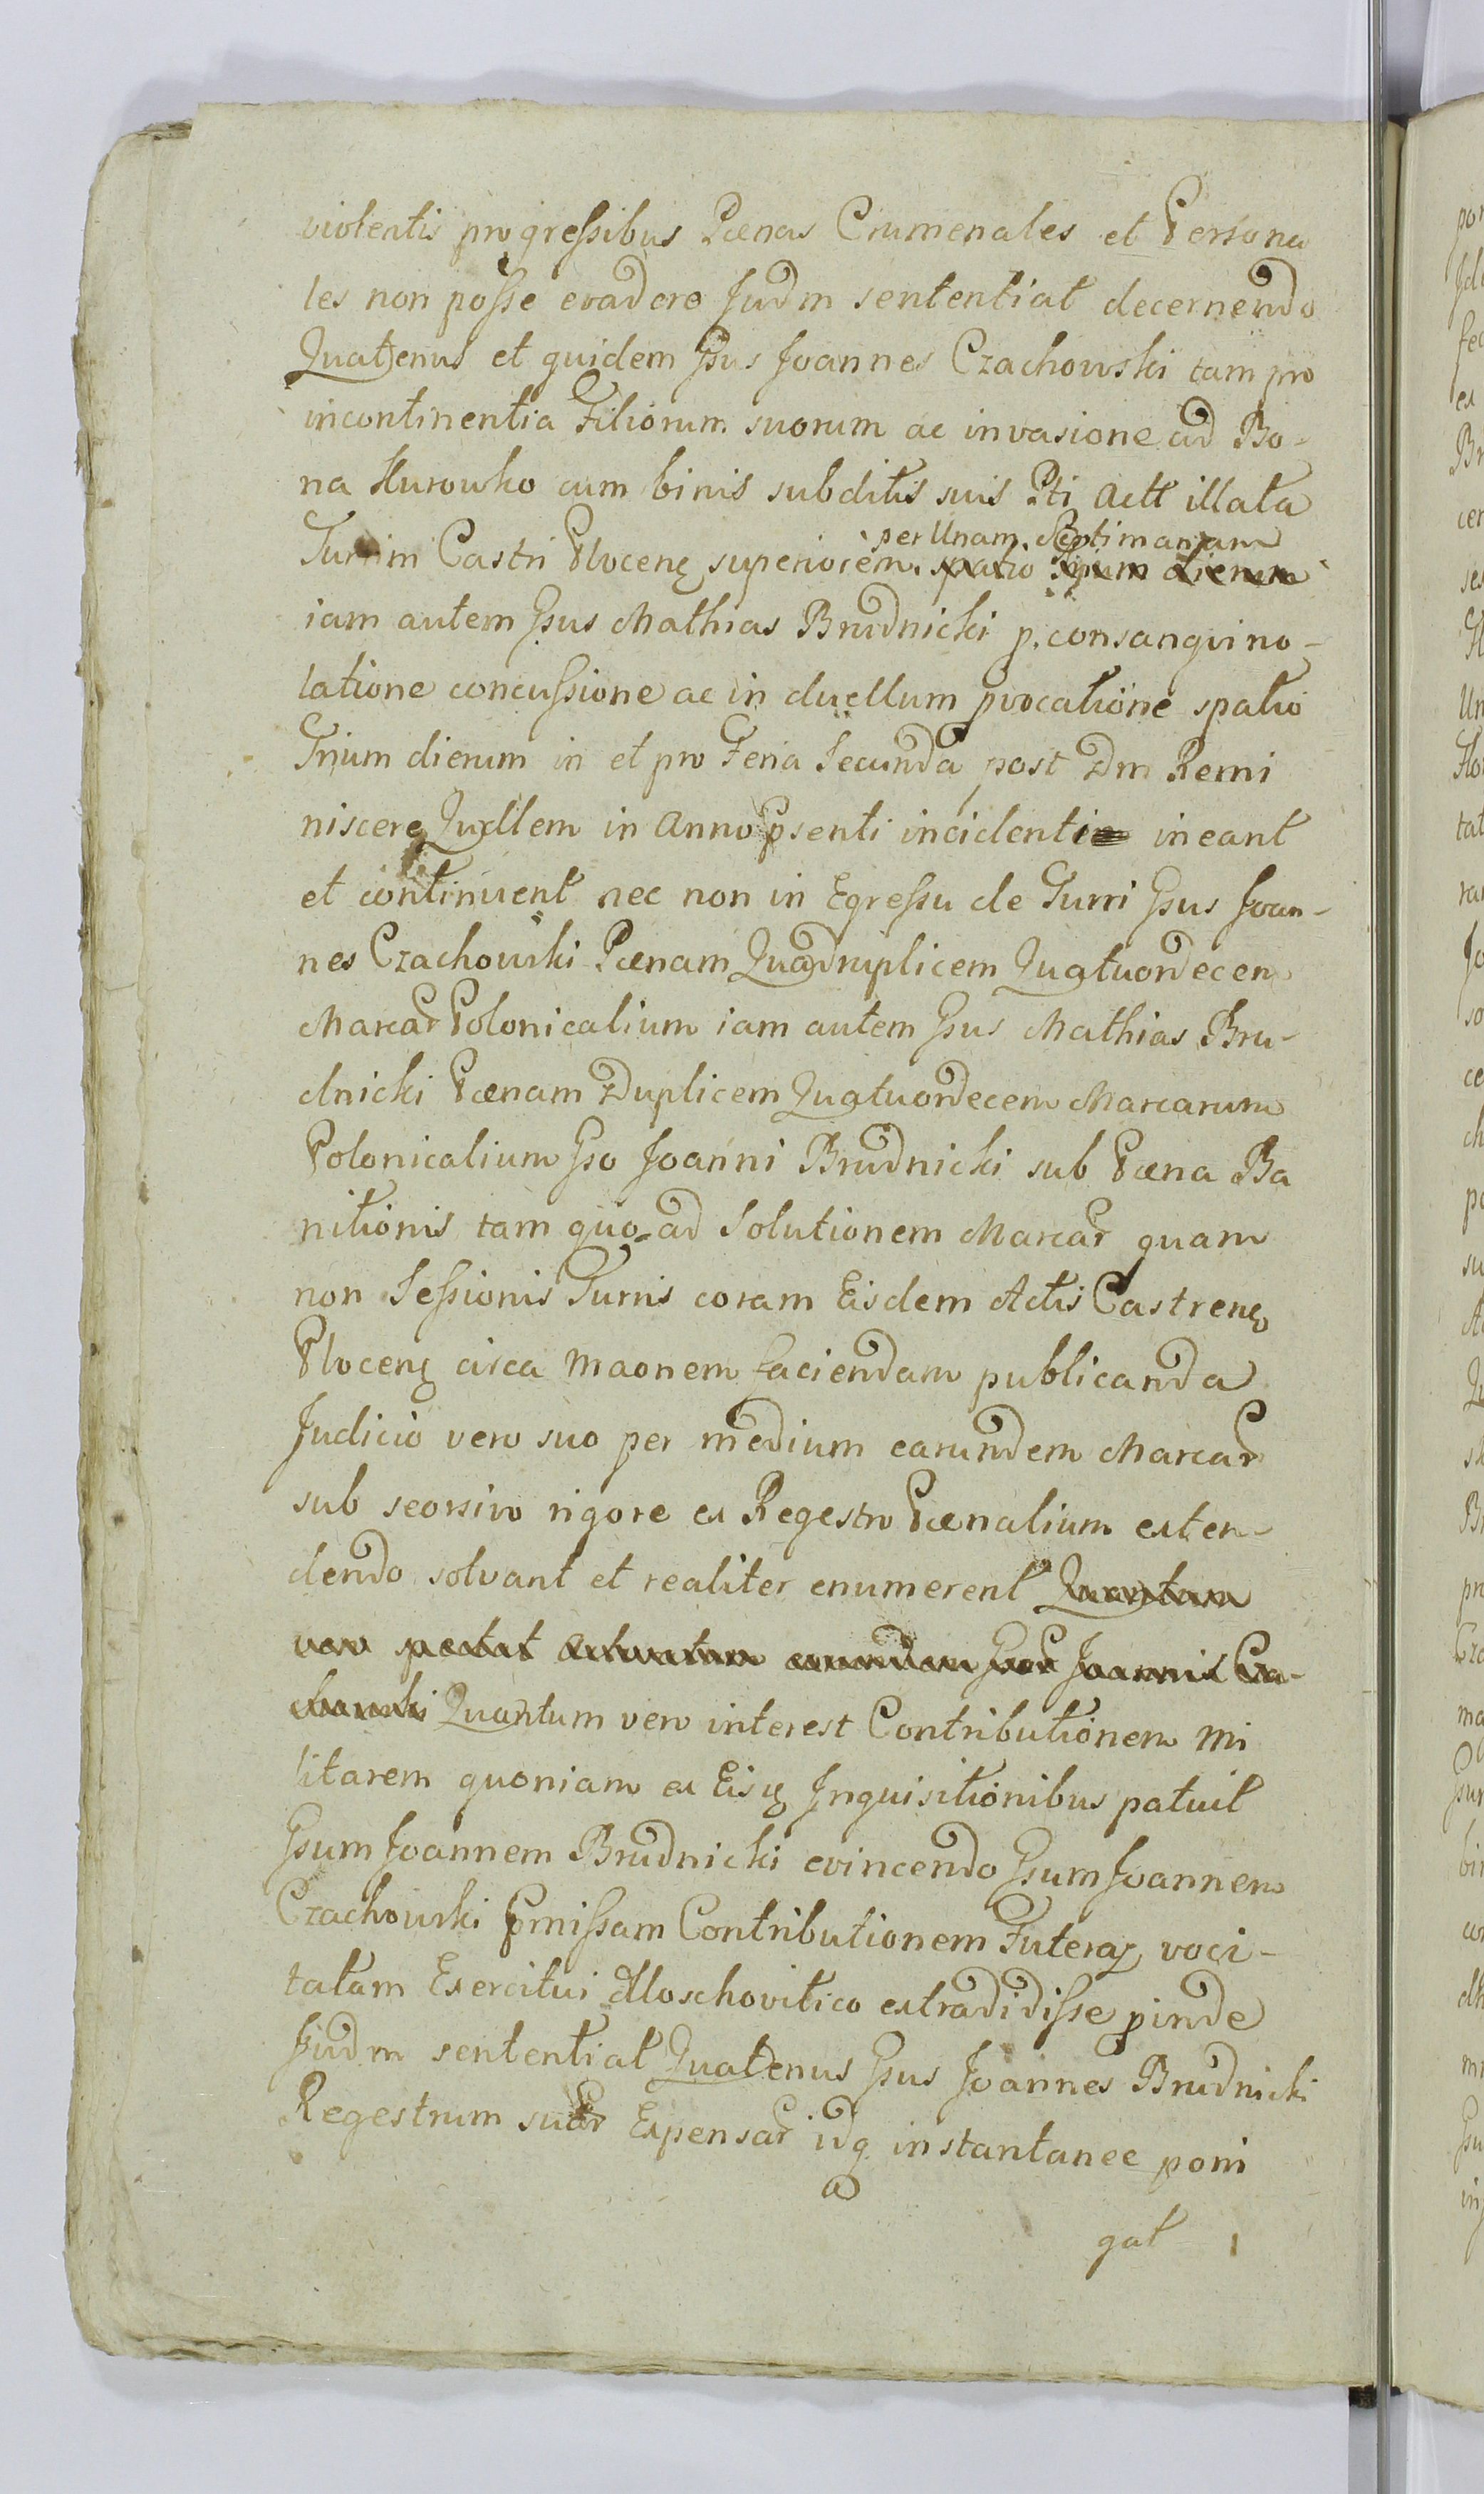 violentis progressibus Pœnas Crumenales et Persona
les non posse evadere Judm sententiat decernendo
Quatenus et quidem Gsus Joannes Czachowski tam pro
incontinentia Filiorum suorum ac invasione ad Bo-
na Kurowko cum binis subditis suis Pti Actt illata
per Unam Septimanam
Turrim Castri Plocenẹ superiorem spatio Trium dierum
iam autem Gsus Mathias Brudnicki p. consanguino-
latione concussione ac in duellum pvocatione spatio
Trium dierum in et pro Feria Secunda post Dm Remi
niscere Qudllem in Anno psenti incidenti ineant
et continuent nec non in Egressu de Turri Gsus Joan-
nes Czachowski Pœnam Quadruplicem Quatuordecem
Marcar Polonicalium iam autem Gsus Mathias Bru-
dnicki Pœnam Duplicem Quatuordecem Marcarum
Polonicalium Gso Joanni Brudnicki sub Pœna Ba
nitionis tam quo-ad Solutionem Marcar quam
non Sessionis Turris coram Eisdem Actis Castrenẹ
Plocenẹ circa Maonem faciendam publicanda
Judicio vero suo per medium earundem Marcar
sub seorsivo rigore ex Regestro Pœnalium exten-
dendo solvant et realiter enumerent Quantum
vero Gsor Joannis Cza-
chowski Quantum vero interest Contributionem Mi
litarem quoniam ex Eisẹ Inquisitionibus patuit
Gsum Joannem Brudnicki evincendo Gsum Joannem
Czachowski pmissam Contributionem Futeraz voci-
tatam Exercitui Moschovitico extradidisse pinde
Judm sententiat Quatenus Gsus Joannes Brudnicki
Regestrum suar Expensar idq instantanee porri
gat